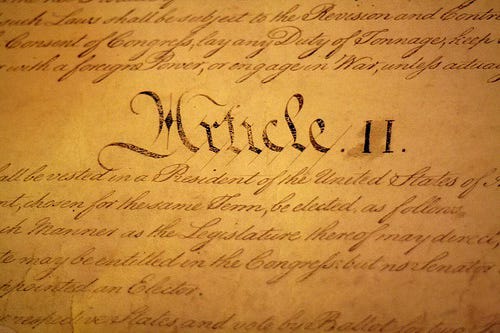 such Laws shall be subject to the Revision and Contr
Consent of Congress, lay any Duty of Tonnage, keep
with a foreign Power, or engage in War, unless actua
Article. II.
all be vested in a President of the United States of
nt, chosen for the same Term, be elected, as follows
ch Manner as the Legislature thereof may direct
te may be entitled in the Congress: but no Senator
ppointed an Elector.
respective States, and vote by Ballot